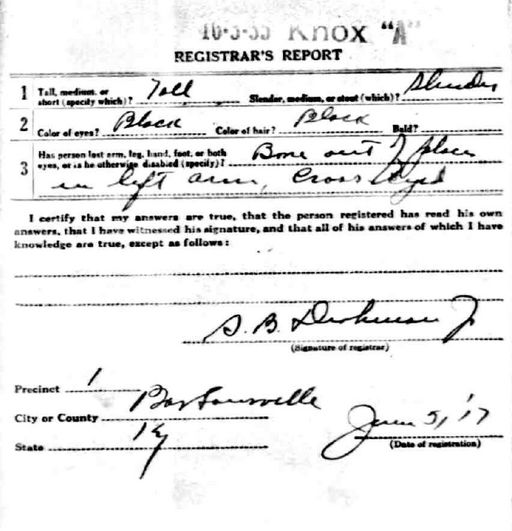 16-3-35 Knox "A"
REGISTRAR'S REPORT
1 Tall, medium, or short (specify which)? Tall Slender, medium, or stout (which)? Slender
2 Color of eyes? Black Color of hair? Black Bald?
3 Has person lost arm, leg, hand, foot, or both eyes, or is he otherwise disabled (specify)? Bone out of place
in left arm, Cross Eyed
I certify that my answers are true, that the person registered has read his own
answers, that I have witnessed his signature, and that all of his answers of which I have
knowledge are true, except as follows:
S. B. Dishman Jr
(Signature of registrar)
Precinct 1
City or County Barbourville
State Ky
June 5, '17
(Date of registration)